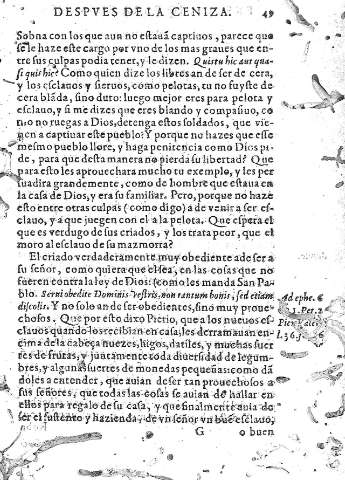 DESPVES DE LA CENIZA. 49
Sobna con los que aun no estauã captiuos, parece que
se le haze este cargo por vno de los mas graues que en-
tre sus culpas podia tener, y le dizen. Quis tu hic aut qua-
si quis hic? Como quien dize los libres an de ser de cera,
y los esclauos y sieruos, como pelotas, tu no fuyste de
cera blãda, sino duro: luego mejor eres para pelota y
esclauo, y si me dizes que eres blando y compasiuo, co-
mo no ruegas a Dios, detenga estos soldados, que vie-
nen a captiuar este pueblo? Y porque no hazes que esse
mesmo pueblo llore, y haga penitencia como Dios pi-
de, para que desta manera no pierda su libertad? Que
para esto les aprouechara mucho tu exemplo, y les per
suadira grandemente, como de hombre que estaua en
la casa de Dios, y era su familiar. Pero, porque no haze
esto entre otras culpas (como digo) a de venir a ser es-
clauo, y a que juegen con el a la pelota. Que espera el
que es verdugo de sus criados, y los trata peor, que el
moro al esclauo de su mazmorra?
El criado verdaderamente muy obediente a de ser a
su señor, como quiera que el sea, en las cosas que no
fueren contra la ley de Dios: como les manda San Pa-
blo. Serui obedite Dominis vestris, non tantum bonis, sed etiam
discolis. Y no solo an de ser obedientes, sino muy proue-
chosos. Que por esto dixo Pierio, que a los nueuos es-
clauos quando los recibian en casa, les derramauan en-
cima de la cabeça nuezes, higos, datiles, y muchas suer
tes de frutas, y juntamente toda diuersidad de legum-
bres, y algunas suertes de monedas pequeñas: como dã
doles a entender, que auian de ser tan prouechosos a
sus señores, que todas las cosas se auian de hallar en
ellos para regalo de su casa, y que finalmente auia de
ser el sustento y hazienda, de vn señor vn buẽ esclauo,
Ad ephe. 6
1. Pet. 2
G o buen